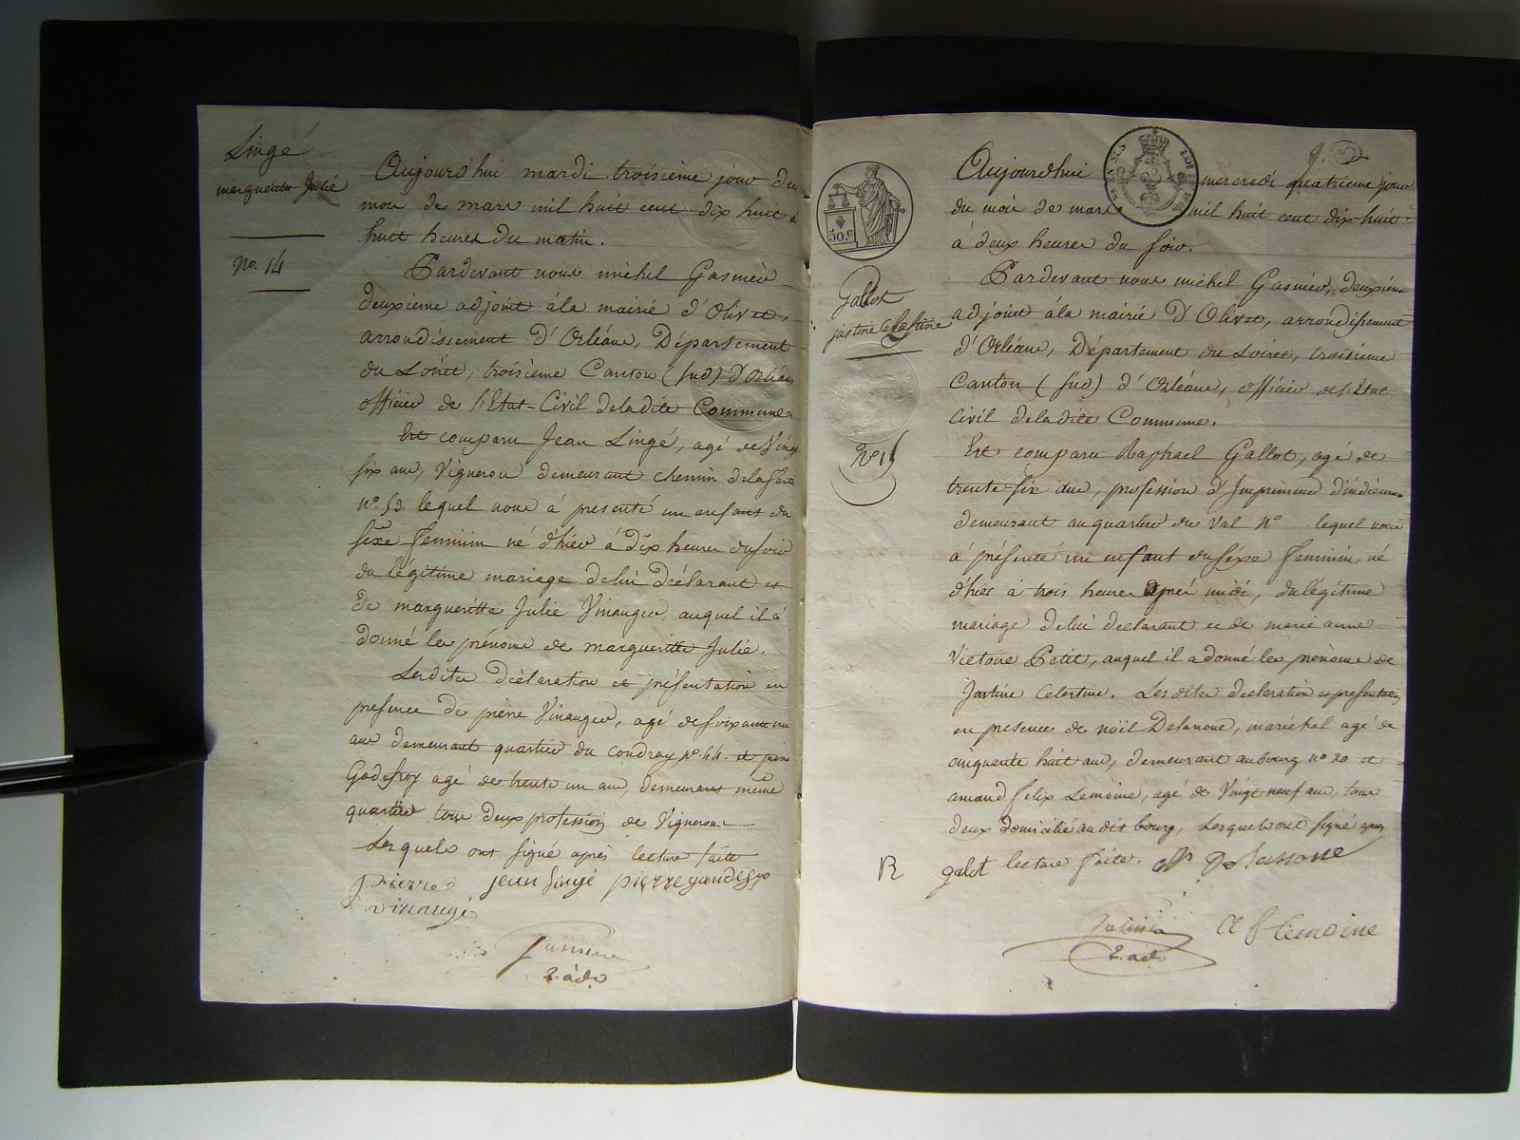 Lingé
margueritte Julié
No. 14
Aujourd'hui mardi troisième jour du
mois de mars mil huit cent dix huit à
huit heures du matin.
Pardevant nous michel Gasnier
deuxieme adjoint à la mairié d'Olivet,
arrondissement d'Orléans, Département
du Loiret, troisième Canton (sud) d'Orléans
officier de l'Etat-Civil de la dite Commune
Est comparu Jean Lingé, agé de Vingt
six ans, Vigneron demeurant chemin de la
no. 53 lequel nous à présenté un enfant du
sexe feminin né d'hier à dix heures du soir
du légitime mariage de lui déclarant et
de margueritte Julie Vinauger auquel il à
donné les prénoms de margueritte Julie.
Lesdites déclaration et présentation en
présence de pierre Vinauger, agé de soixante un
ans demeurant quartier du coudray no. 44. et pierre
Godefroy agé de trente un ans, demeurant même
quartier tous deux profession de Vigneron
Lesquels ont signé après lecture faite
pierre jean lingé pierre gaudefroy
vinaugé
2. adj.
50 c.
Gallot
justine Celestine
No 15
Aujourdhui mercredi quatrieme jour
du mois de mars mil huit cent dix-huit
à deux heures du soir.
Pardevant nous michel Gasnier, deuxième
adjoint à la mairié D'Olivet, arrondissement
d'Orléans, Département du Loiret, troisieme
Canton (sud) d'Orléans, officier de l'Etat
civil de la dite Commune.
Est comparu Raphael Gallot, agé de
trente six ans, profession d'Imprimeur d'indiennes
demeurant au quartier du Val No lequel nous
à présenté un enfant du sexe feminin né
d'hier à trois heures après midi, du légitime
mariage de lui declarant et de marie anne
Victoire Petit, auquel il a donné les prénoms de
Justine Celestine. Lesdites declaration et présentation
en presence de noël Delanoue, maréchal agé de
cinquante huit ans, demeurant au bourg no 20 et
amand felix Lemoine, agé de Vingt neuf ans tous
deux domicilié au dit bourg, Lesquels ont signé après
galot lecture faite.
R
A f lemoine
2. adj.